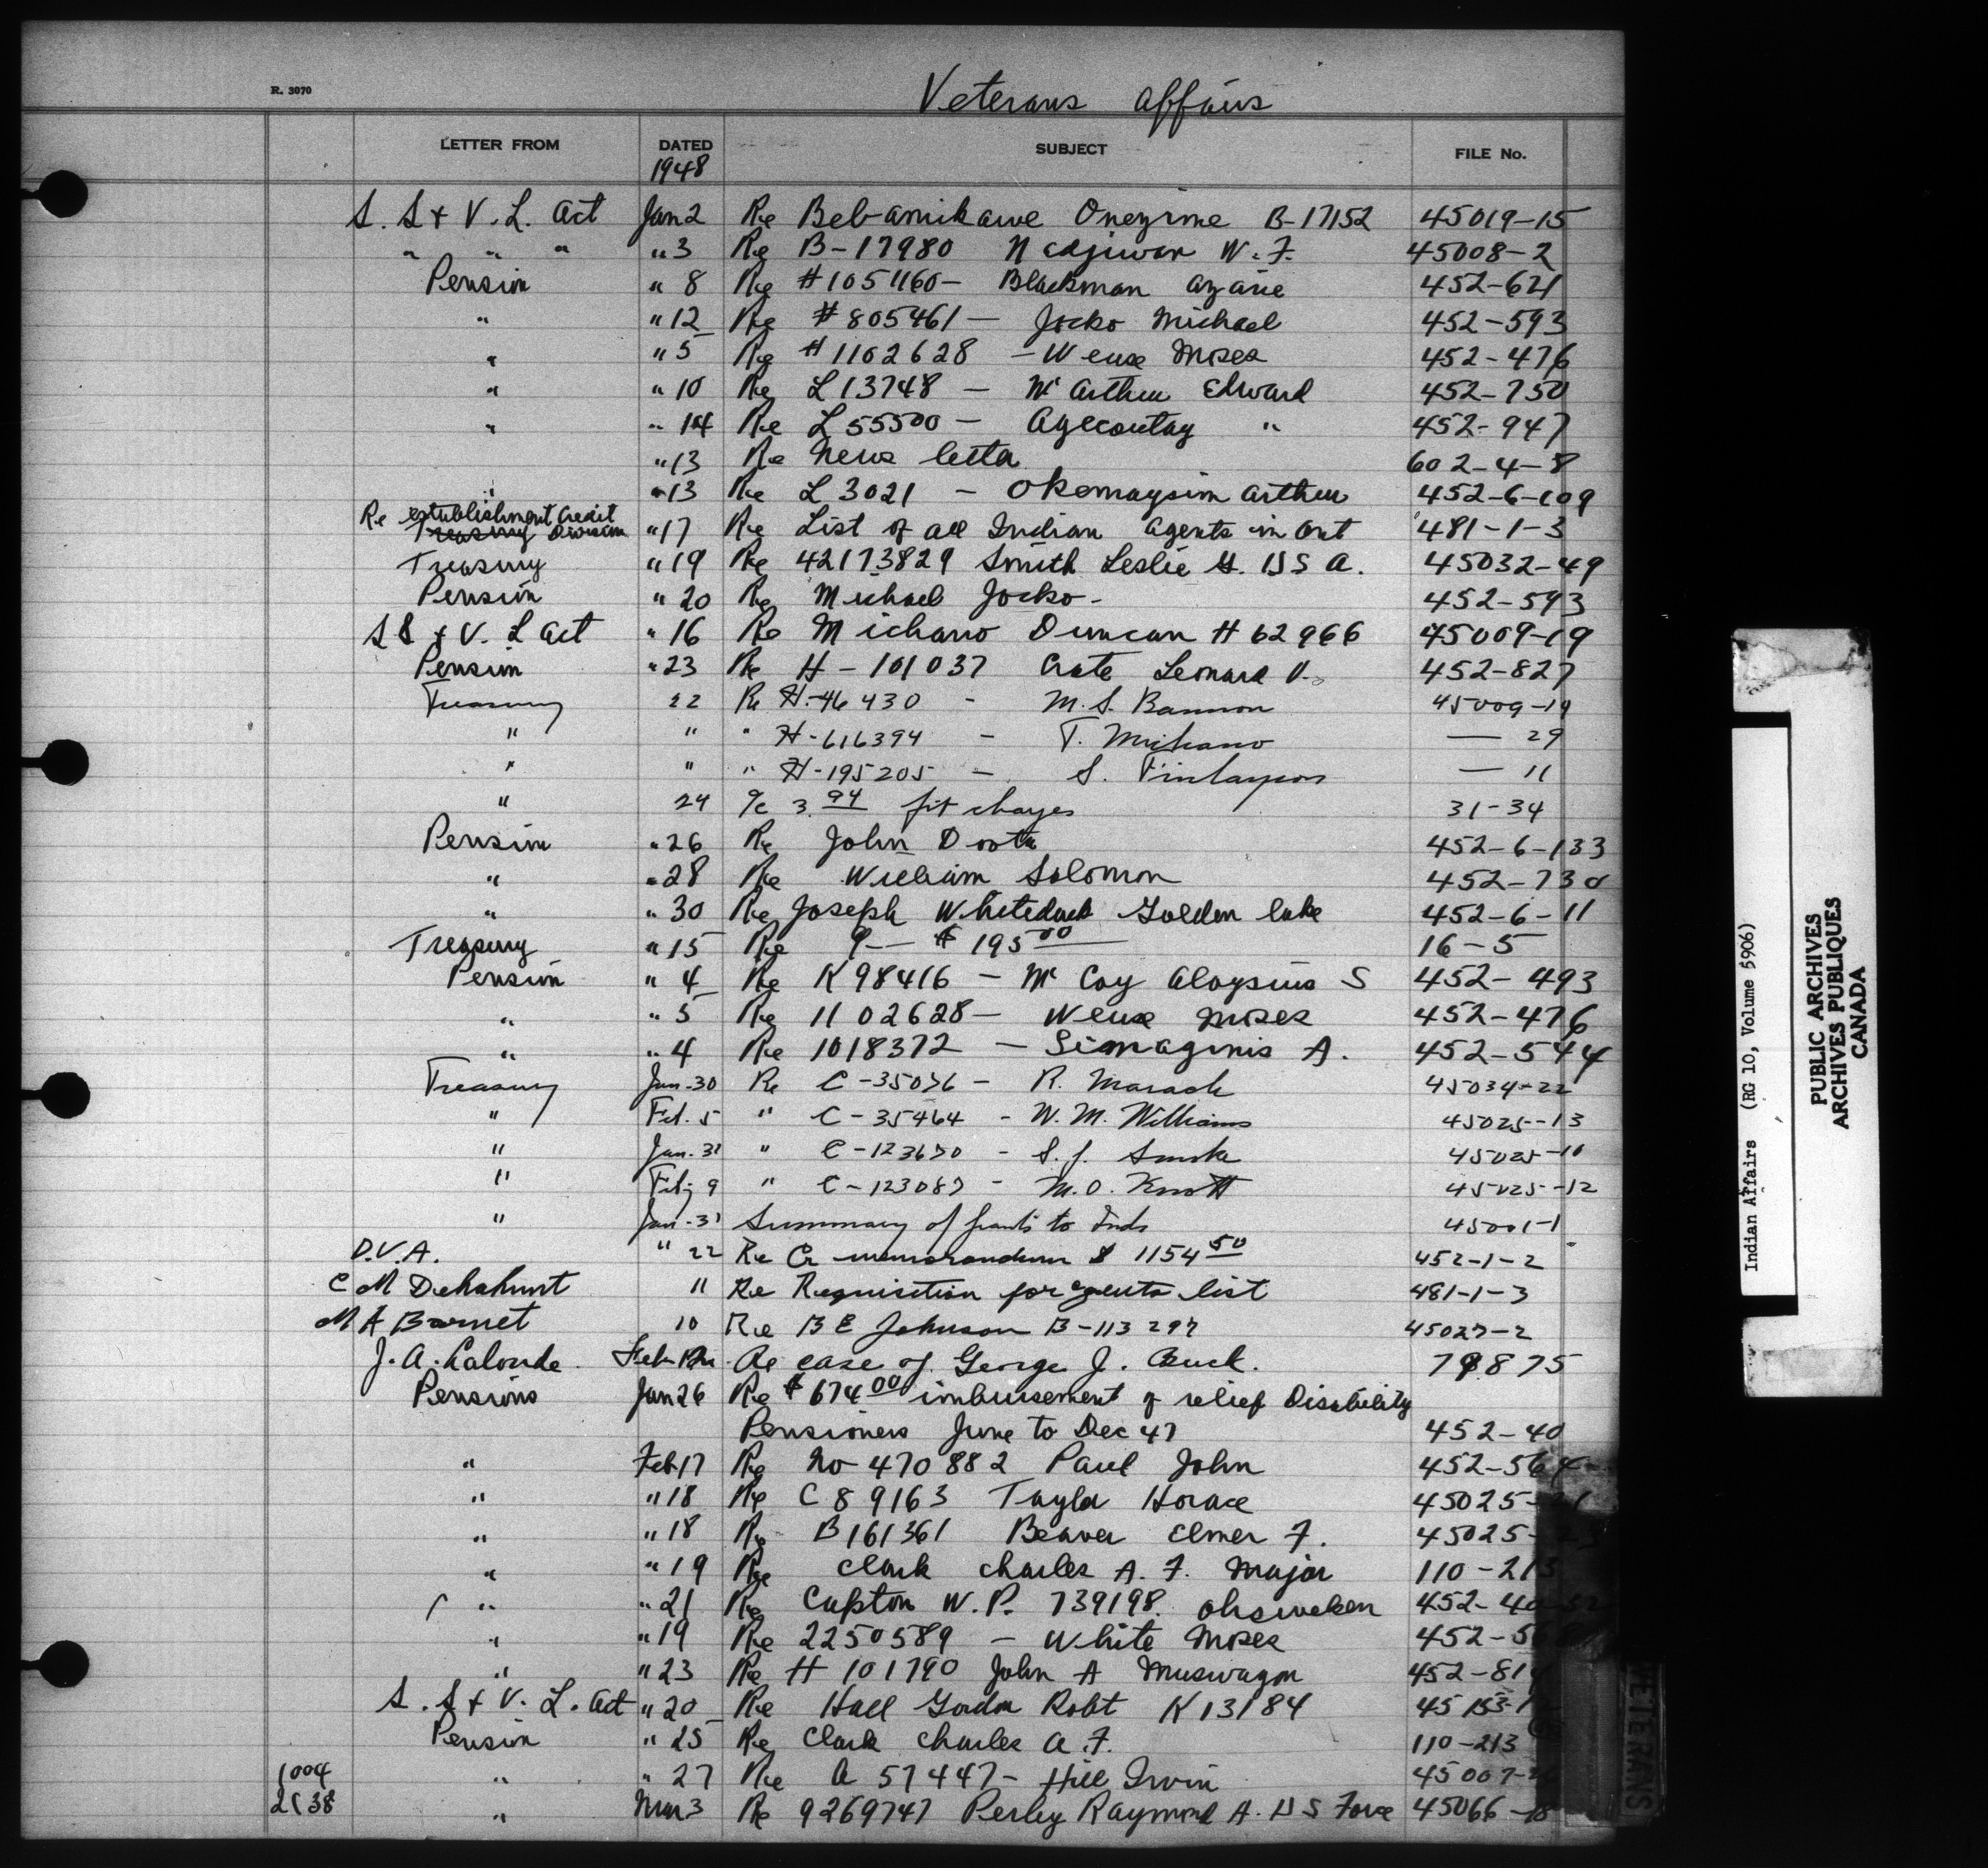 R. 3070
Veterans Affairs
LETTER FROM DATED SUBJECT FILE No.
1948
S. S + V. L. Act Jan 2 Re Bebamikawe Onezime B-17152 45019-15
" " " " 3 Re B-17980 Nadjiwon W. F. 45008-2
Pension " 8 Re #1051160- Blackman Azarie 452-621
" " 12 Re #805461- Jocko Michael 452-593
" " 5 Re #1102628 - Wense Moses 452-476
" " 10 Re L 13748 - McArthur Edward 452-750
" " 14 Re L 55500 - Agecoutay " 452-947
" 13 Re News letter 602-4-8
" " 13 Re L 3021 - Okemaysim Arthur 452-6-109
Re establishment Credit
Treasury Division " 17 Re List of all Indian Agents in Ont 481-1-3
Treasury " 19 Re 42173829 Smith Leslie G. U S A. 45032-49
Pension " 20 Re Michael Jocko- 452-593
S S + V. L Act " 16 Re Michano Duncan H 62966 45009-19
Pension " 23 Re H-101037 Crate Leonard V. 452-827
Treasury 22 Re H-46430 - M. S. Bannon 45009-19
" " " H-616394 - T. Michano — 29
" " " H-195205 - S. Finlayson — 11
" 24 a/c 3.94 frt charges 31-34
Pension " 26 Re John 452-6-133
" " 28 Re William Solomon 452-730
" " 30 Re Joseph Whiteduck Golden lake 452-6-11
Treasury " 15 Re $195 00 16-5
Pension " 4 Re K 98416 - McCoy Aloysius S 452-493
" " 5 Re 1102628- Wense Moses 452-476
" " 4 Re 1018372 - Simaginis A. 452-544
Treasury Jan-30 Re C-35076 - R. Maracle 45034-22
" Feb. 5 " C-35464 - W. M. Williams 45025-13
" Jan-31 " C-123670 - S. J. Smoke 45025-10
" Feby 9 " C-123087 - M. O. Knott 45025-12
" Jan-31 Summary of grants to Inds 45001-1
D.V.A. " 22 Re Cr memorandum $ 1154 50 452-1-2
C M Dehahunt 11 Re Requisition for agents list 481-1-3
M A Barnet 10 Re B E Johnson B-113297 45027-2
J. A. Lalonde Feb 12 Re case of George J. Buck. 79875
Pensions Jan 26 Re $674 00 imbursement of relief Disability
Pensioners June to Dec 47 452-40
" Feb 17 Re No 470882 Paul John 452-564
" " 18 Re C 89163 Taylor Horace 45025-21
" " 18 Re B161361 Beaver Elmer F. 45025-
" " 19 Re Clark Charles A. F. Major 110-213
" " 21 Re Capton W. P. 739198. Ohsweken 452-40-
" " 19 Re 2250589 - White Moses 452-56
" " 23 Re H 101790 John A Muswagon 452-81
S. S + V. L. Act " 20 Re Hall Gordon Robt K 13184 45153-1
Pension " 25 Re Clark Charles A. F. 110-213
1004 " " 27 Re A 57447- Hill Irvin 45007-
2138 " Mar 3 Re 9269747 Perley Raymond A. U S Force 45066-18
VETERANS
Indian Affairs (RG 10, Volume 5906)
PUBLIC ARCHIVES
ARCHIVES PUBLIQUES
CANADA